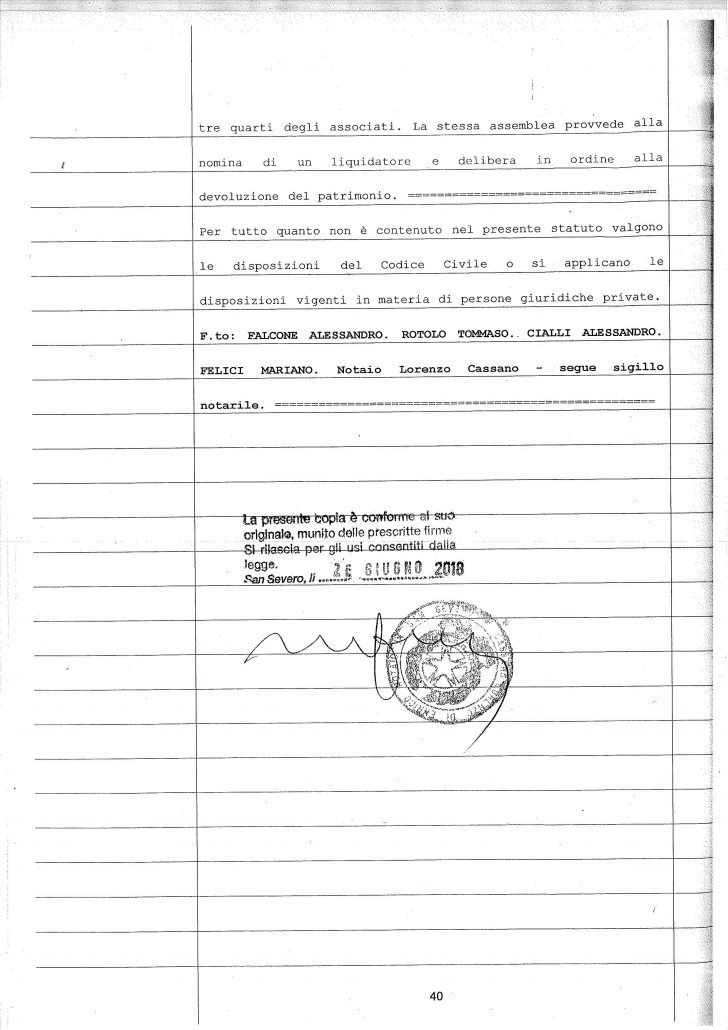 tre quarti degli associati. La stessa assemblea provvede alla
nomina di un liquidatore e delibera in ordine alla
devoluzione del patrimonio. ==================================
Per tutto quanto non è contenuto nel presente statuto valgono
le disposizioni del Codice Civile o si applicano le
disposizioni vigenti in materia di persone giuridiche private.
F.to: FALCONE ALESSANDRO. ROTOLO TOMMASO. CIALLI ALESSANDRO.
FELICI MARIANO. Notaio Lorenzo Cassano - segue sigillo
notarile. ====================================================
La presente copia è conforme al suo
originale, munito delle prescritte firme
Si rilascia per gli usi consentiti dalla
legge.
San Severo, lì 26 GIUGNO 2018
40